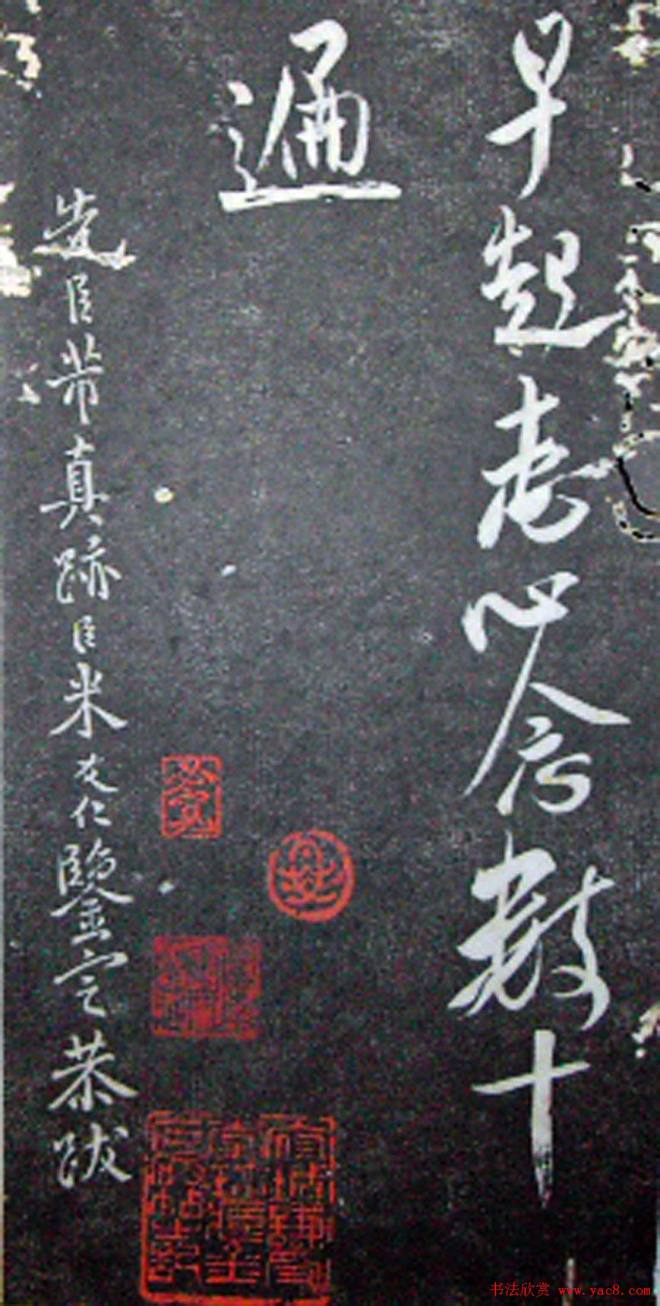 早起志心念數十
遍
先臣芾真跡臣米友仁鑒定恭跋
书法欣赏 www.yac8.com